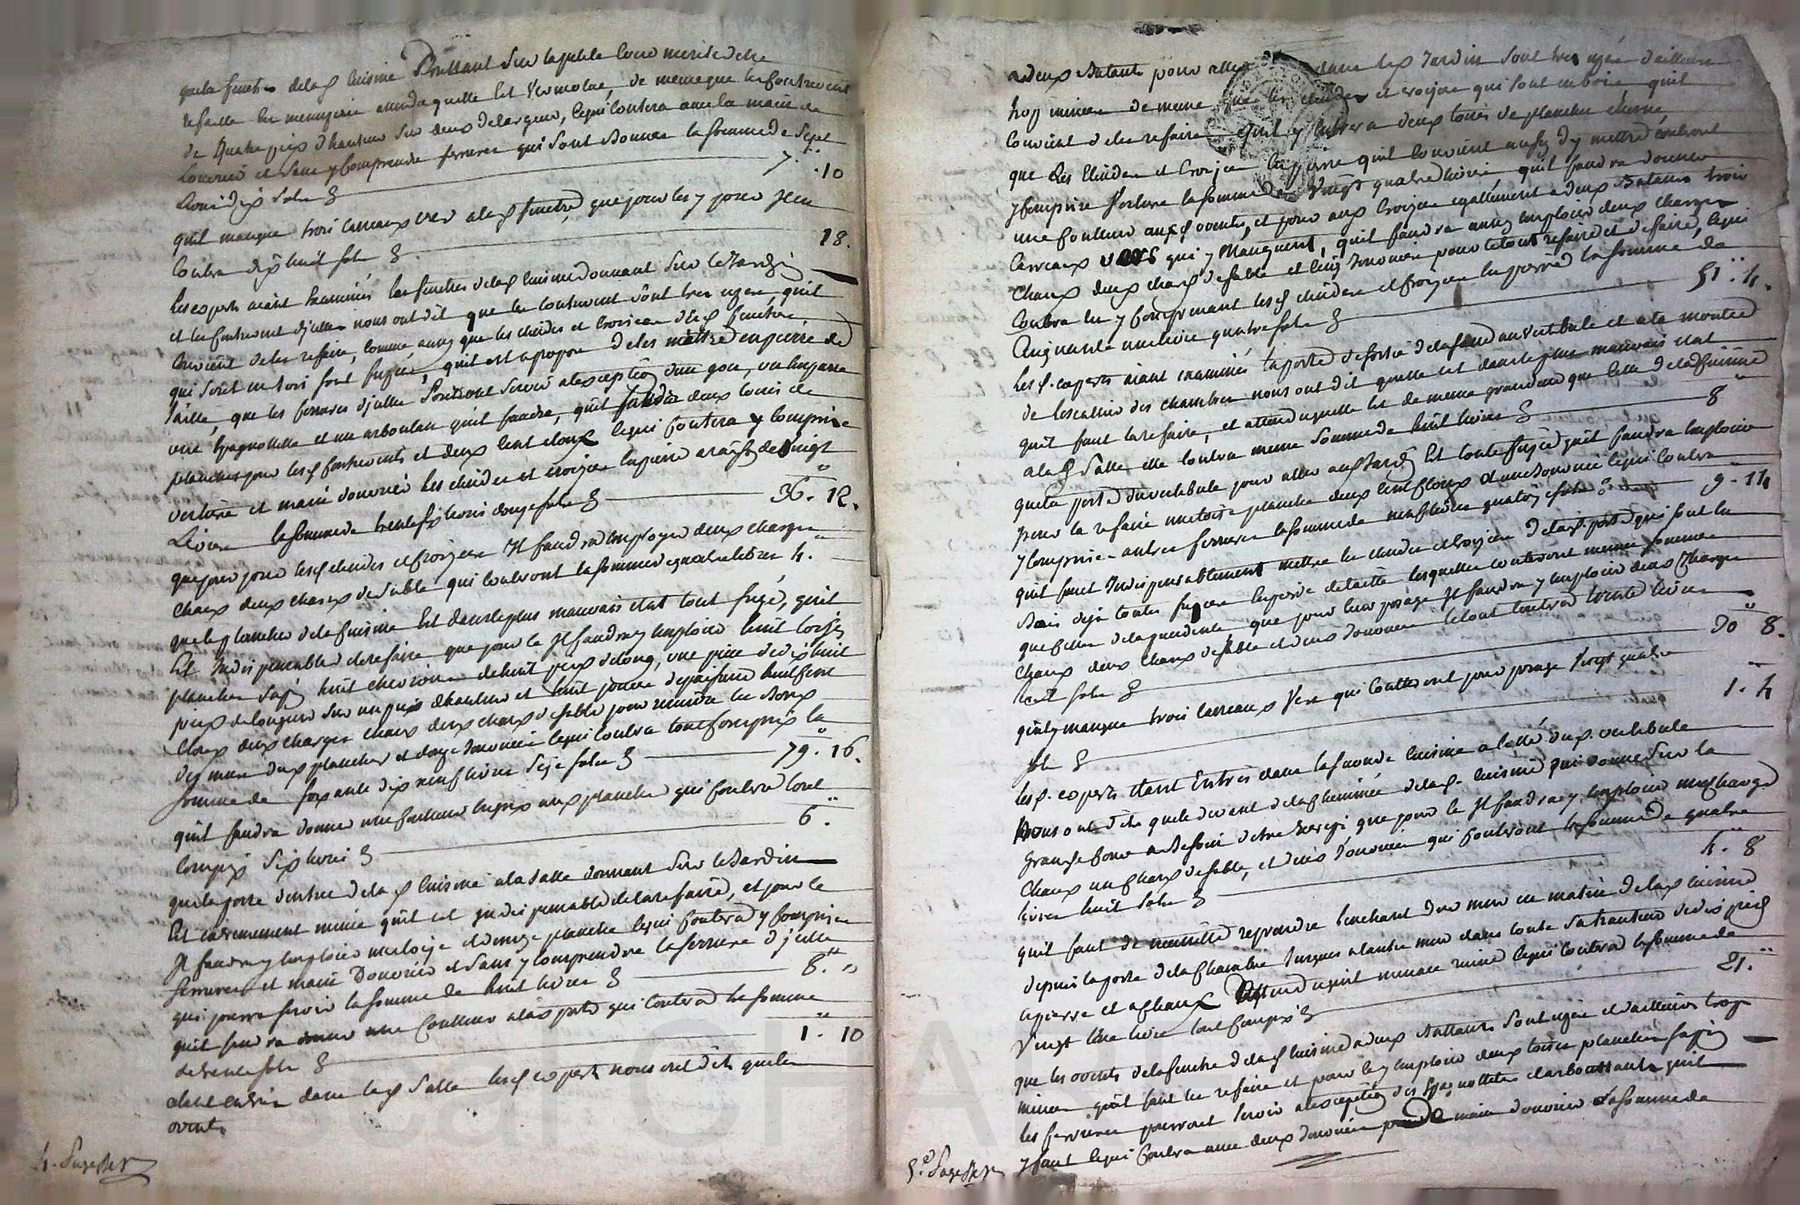 que la fenetre de lad cuisine donnant sur la petite cour merite detre
refaitte en menuiserie attendu quelle est vermolue, de meme que les contrevent
de quatre pieds d'hauteur sur deux de largeur, lequi coutera avec la main de
l'ouvrier et sans y comprendre ferrures qui sont bonnes la somme de sept
livres dix sols 7.. 10
quil manque trois carreaux ver a lad fenetre, que pour les y poser il en
coutera dix huit sols 18.
les experts aiant examinés les fenetres de lad cuisine donnant sur le Jardin
et les contrevent d'jcelles nous ont dit que les contrevent sont tres usés quil
convient de les refaire, comme aussy que les chudes et croisées desd fenetres
qui sont en bois sont fusées, quil est apropos de les mettre en pierre de
taille, que les ferrures d'jcelles pourront servir a lexception dun gon,
une Espagnollette et un arboutan quil faudra, quil faudra deux toises de
planches pour lesd contrevents et deux cent cloux lequi coutera y comprise
voiture et main d'ouvriés les chudes et croisées en pierre a raison de vingt
Livres la somme de trente six livres douze sols 36.. 12.
que pour poser lesd chudes et croisées Jl faudra employer deux charges
chaux deux chards de sable qui couteront la somme de quatre livres 4..
que le plancher de la cuisine Est dans le plus mauvais etat tout fusé, quil
Est Jndispensable de le refaire que pour le Jl faudra y employer huit toises
planches sapin huit chevrons de huit pieds de long, une piece de dix huit
pieds de longueur sur un pied d'hauteur et huit pouces d'epaisseur huit cent
cloux deux charges chaux deux chards de sable pour remettre les trous
des murs dud plancher et douze Journées lequi coutera tout compris la
somme de soixante dix neuf livres seize sols 79.. 16.
quil faudra donner une couleur en gris aud plancher qui coutera tout
compris six livres 6..
que la porte dentrée de lad cuisine a la salle donnant sur le Jardin
Est entierement minée quil est jndispensable de la refaire, et pour le
Jl faudra y employer une toise et demye planche lequi coutera y compris
ferrures et main d'ouvriés et sans y comprendre la ferrure d'jcelle
qui pourra servir la somme de huit livres 8.. "
quil faudra donner une couleur a lad porte qui coutera la somme
de trente sols 1.. 10
etant entrés dans lad salle lesd experts nous ont dit que les
ovents
4. Sagesser
a deux Batants pour aller dans led Jardin sont tres usés d'ailleurs
trop minces de meme que les chudes et croisées qui sont en bois quil
convient de les refaire quil y entrera deux toises de planches chesne
que les chudes et croisées en pierre quil convient aussy d'y mettre couteront
y comprise voiture la somme de vingt quatre livres quil faudra donner
une couleur aux d ovents, et pour aux croisées egallement a deux Batans trois
carreaux vers qui y manquent, quil faudra aussy employer deux charges
chaux deux chards de sable et cinq Journées pour le tout refaire et defaire, lequi
coutera en y comprenant lesd chudes et croisées en pierre la somme de
cinquante une livres quatre sols 51.. 4.
les d. experts aiant examinés la porte de sortie dela aud vestibule et a la montée
de lescallier des chambres nous ont dit quelle est dans le plus mauvais etat
quil faut la refaire, et attendu quelle est de meme grandeur que celle de la cuisine
a lad salle elle coutera meme somme de huit livres 8..
que la porte du vestibule pour aller aud Jardin Est toute fusée quil faudra employer
pour la refaire une toise planche deux cent cloux et une Journée lequi coutera
y comprise autres ferrures la somme de neuf livres quatorze sols 9.. 14
quil faut Jndispensablement mettre les chudes et croisées de lad porte qui sont en
bois deja toutes fusées en pierre de taille lesquelles couteront meme somme
que celles de la precedente que pour leur posage Jl faudra y employer deux charges
chaux deux chards de sable et deux Journées le tout coutera trente livres
huit sols 30.. 8.
quil y manque trois carreaux vere qui couteront pour posage vingt quatre
sols 1.. 4
les d. experts etant Entrés dans la seconde cuisine a coté dud vestibule
nous ont dit que le devent de la cheminée de lad. cuisine qui donne sur la
grange bone a besoin detre recrepi que pour le Jl faudra y employer une charge
chaux un chard de sable, et deux Journées qui couteront la somme de quatre
livres huit sols 4.. 8
quil faut de necessité reprendre lenchant du mur en matin de lad cuisine
depuis la porte de la chambre Jusques a lautre mur dans toute sa hauteur de dix pieds
en pierre et a chaux attendu quil menace ruine lequi coutera la somme de
vingt une livre tout compris 21..
que les ovents de la fenetre de lad cuisine a deux Battants sont usés et d'ailleurs trop
minces quil faut les refaire et pour le y employer deux toises planches sapin
les ferrures pourront servir a lexception des Espagnolettes et arboutants quil
y faut lequi coutera avec deux Journées pour main d'ouvriés la somme de
5.e Sagesser